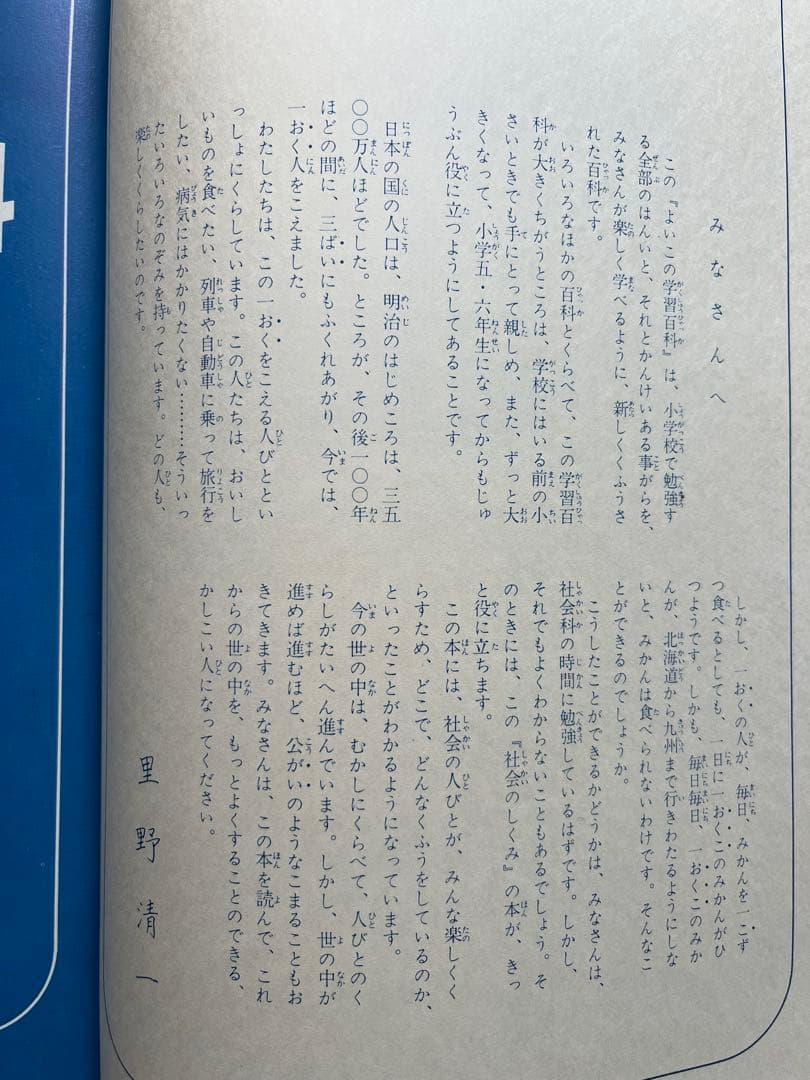 みなさんへ
この『よいこの学習百科』は、小学校で勉強す
る全部のはんいと、それとかんけいある事がらを、
みなさんが楽しく学べるように、新しくくふうさ
れた百科です。
いろいろなほかの百科とくらべて、この学習百
科が大きくちがうところは、学校にはいる前の小
さいときでも手にとって親しめ、また、ずっと大
きくなって、小学五・六年生になってからもじゅ
うぶん役に立つようにしてあることです。
日本の国の人口は、明治のはじめころは、三五
〇〇万人ほどでした。ところが、その後一〇〇年
ほどの間に、三ばいにもふくれあがり、今では、
一おく人をこえました。
わたしたちは、この一おくをこえる人びととい
っしょにくらしています。この人たちは、おいし
いものを食べたい、列車や自動車に乗って旅行を
したい、病気にはかかりたくない………そういっ
たいろいろなのぞみを持っています。どの人も、
楽しくくらしたいのです。
しかし、一おくの人が、毎日、みかんを一こず
つ食べるとしても、一日に一おくこのみかんがひ
つようです。しかも、毎日毎日、一おくこのみか
んが、北海道から九州まで行きわたるようにしな
いと、みかんは食べられないわけです。そんなこ
とができるのでしょうか。
こうしたことができるかどうかは、みなさんは、
社会科の時間に勉強しているはずです。しかし、
それでもよくわからないこともあるでしょう。そ
のときには、この『社会のしくみ』の本が、きっ
と役に立ちます。
この本には、社会の人びとが、みんな楽しくく
らすため、どこで、どんなくふうをしているのか、
といったことがわかるようになっています。
今の世の中は、むかしにくらべて、人びとのく
らしがたいへん進んでいます。しかし、世の中が
進めば進むほど、公がいのようなこまることもお
きてきます。みなさんは、この本を読んで、これ
からの世の中を、もっとよくすることのできる、
かしこい人になってください。
里野清一